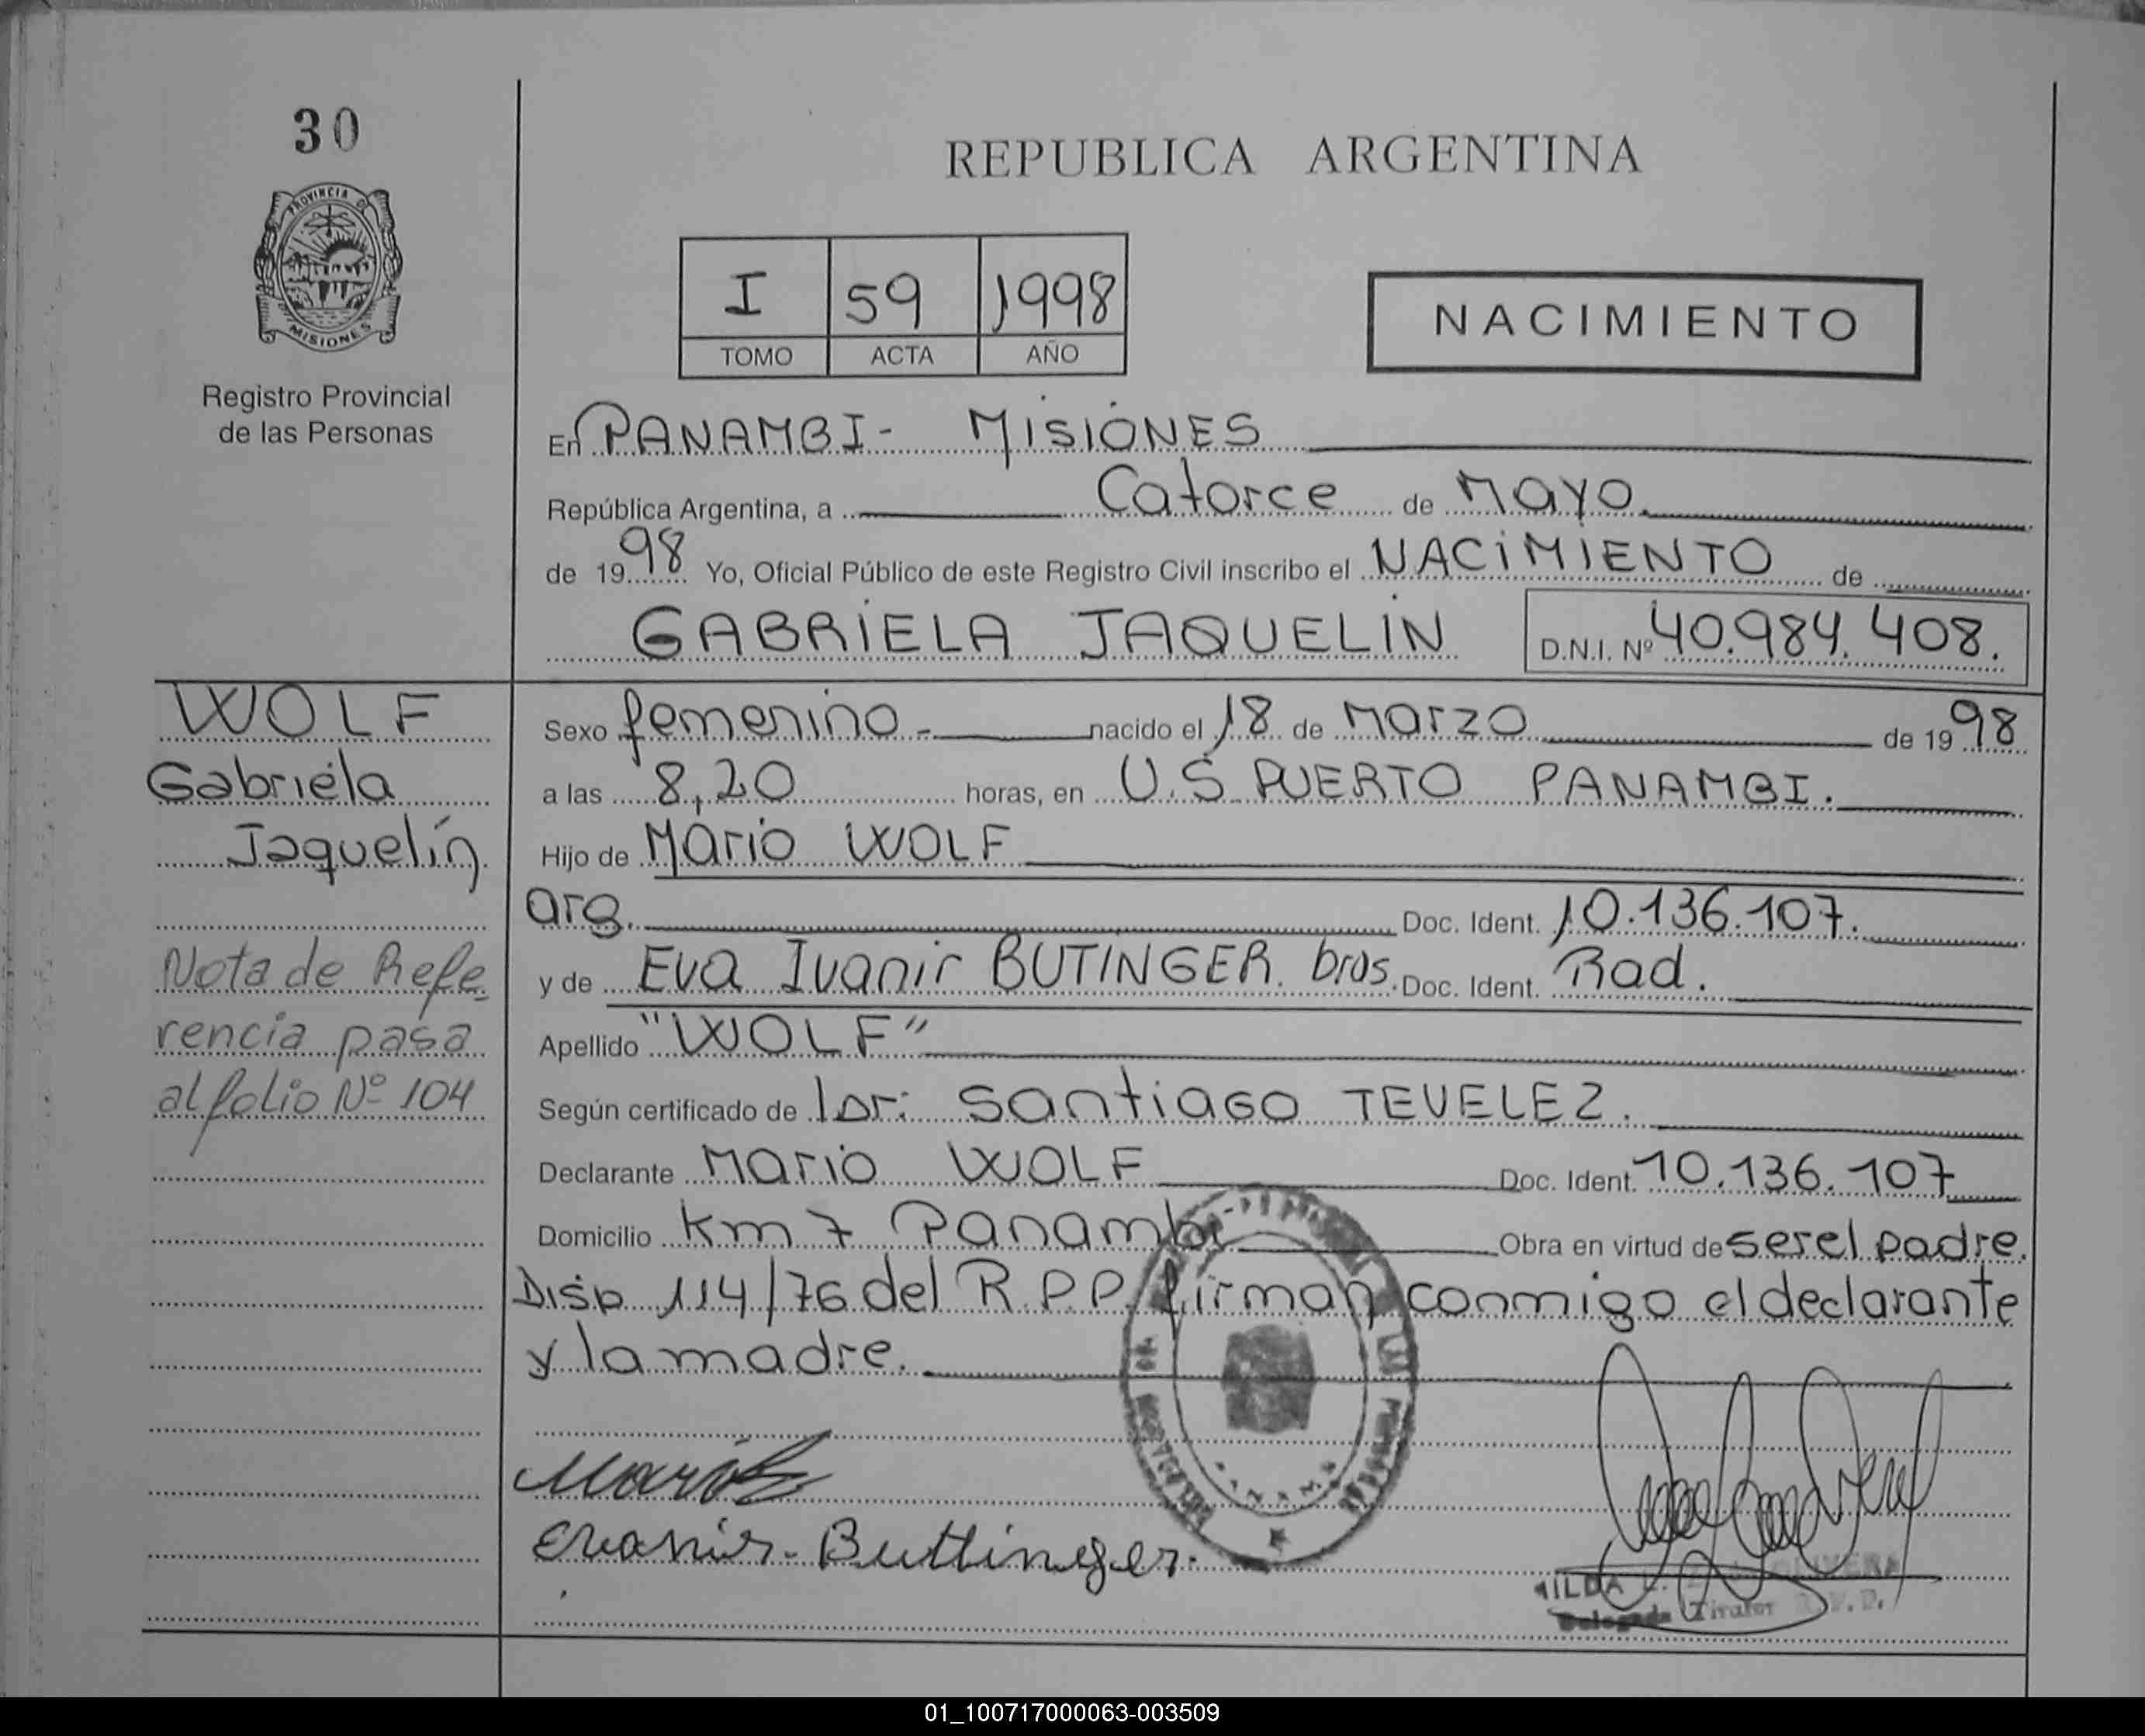 30
PROVINCIA D
MISIONES
Registro Provincial
de las Personas
REPUBLICA ARGENTINA
I 59 1998
TOMO ACTA AÑO
NACIMIENTO
En PANAMBI- MISIONES
República Argentina, a Catorce de Mayo.
de 1998 Yo, Oficial Público de este Registro Civil inscribo el NACIMIENTO de
GABRIELA JAQUELIN D.N.I. Nº 40.984.408.
WOLF
Gabriela
Jaquelín
Nota de Refe
rencia pasa
al folio Nº 104
Sexo femenino.- nacido el 18 de Marzo de 1998
a las 8,20 horas, en U.S PUERTO PANAMBI.
Hijo de Mario WOLF
arg. Doc. Ident. 10.136.107.
y de Eva Ivanir BUTINGER. bras. Doc. Ident. Rad.
Apellido "WOLF"
Según certificado de Dr: Santiago TEVELEZ.
Declarante Mario WOLF Doc. Ident. 10.136.107
Domicilio Km 7 Panambi Obra en virtud de ser el padre.
Disp 114/76 del R.P.P. firman conmigo el declarante
y la madre.
Buttingerr.